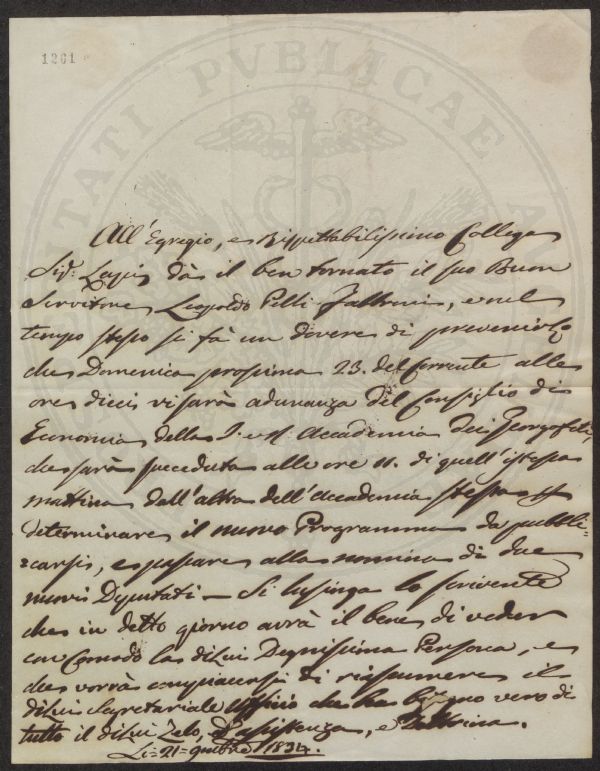 1261
PVBLICAE
All'Egregio, e Rispettabilissimo Collega
Sig.r dà il ben tornato il suo Buon
Servitore Leopoldo Pelli Fabbroni, e nel
tempo stesso si fà un dovere di prevenirlo
che Domenica prossima 23. del Corrente alle
ore dieci vi sarà adunanza del Consiglio di
Economia della I. e R. Accademia dei Georgofili,
che sarà succeduta alle ore 11. di quell'istessa
mattina dall'altra dell'Accademia stessa p
determinare il nuovo Programma da pubbli=
=carsi, e passare alla nomina di due
nuovi Deputati — Si lusinga lo scrivente
che in detto giorno avrà il bene di veder
con Comodo la di Lui Degnissima Persona, e
che vorrà compiacersi di riassumere il
di Lui Segretariale Uffizio che ha bisogno vero di
tutto il di Lui Zelo, d'assistenza, e Dottrina.
Li = 21 = 1834.